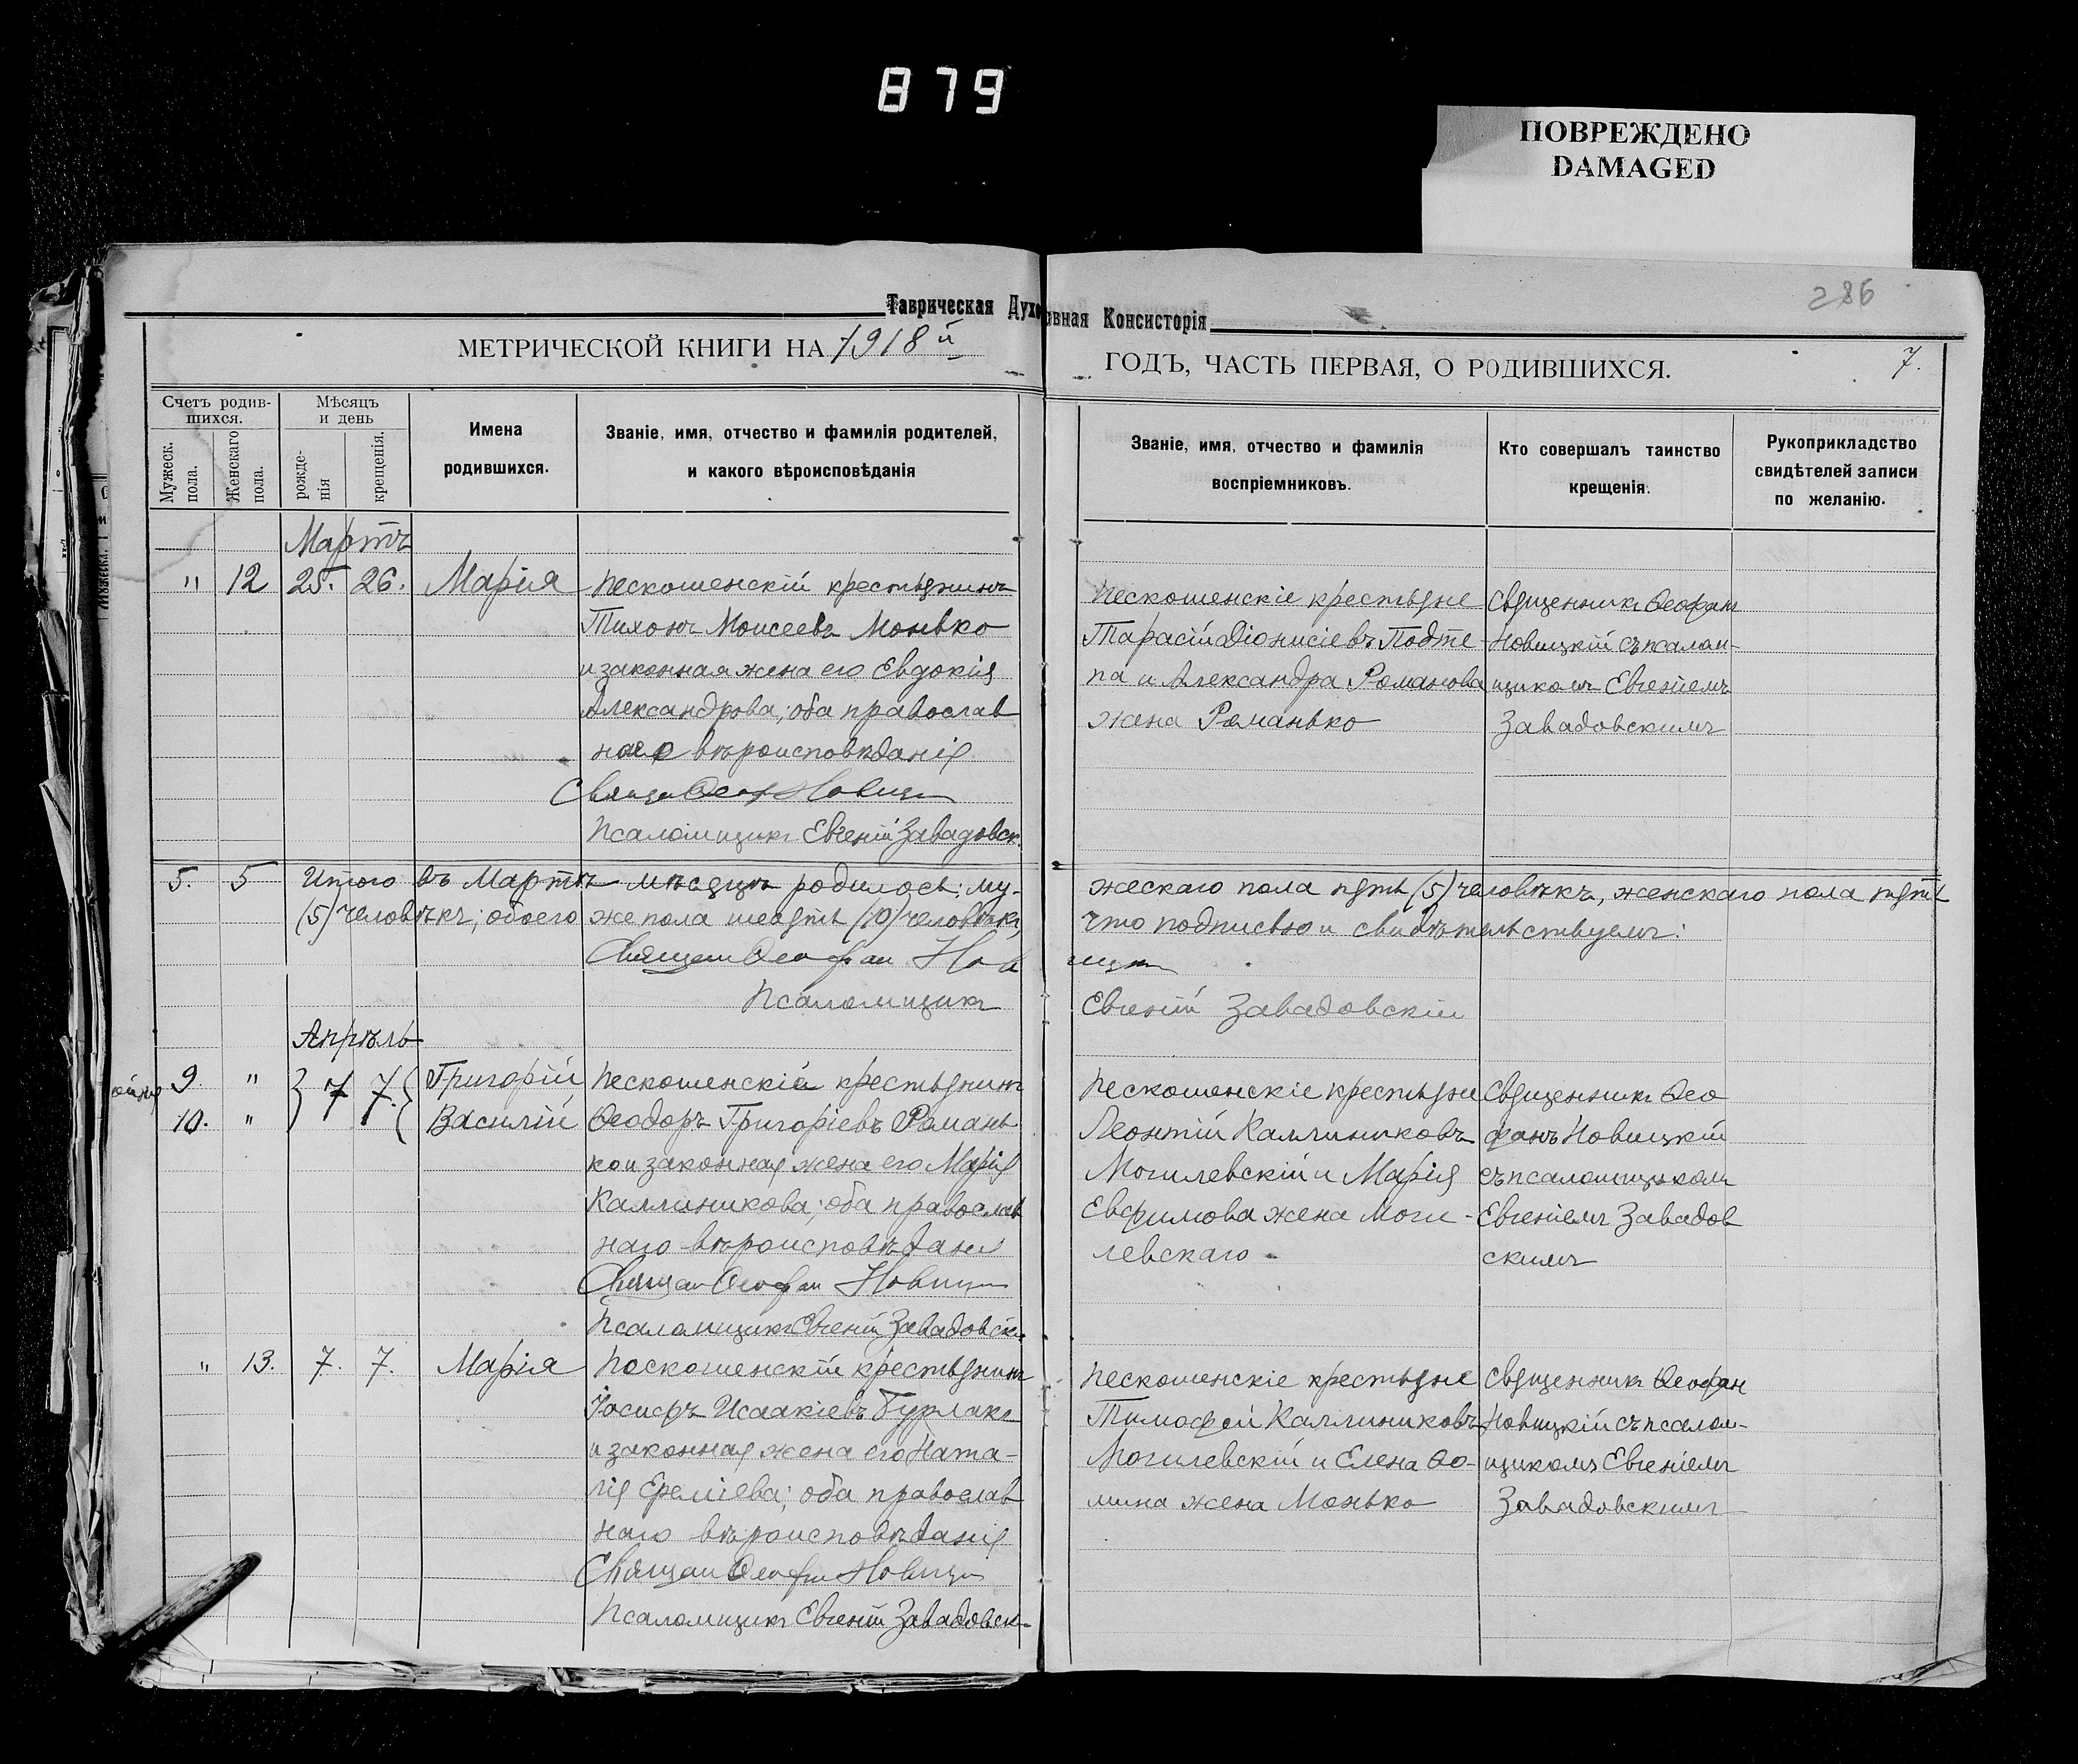 879
ПОВРЕЖДЕНО
DAMAGED
286
Таврическая Духовная Консисторія
МЕТРИЧЕСКОЙ КНИГИ НА 1918й
ГОДЪ, ЧАСТЬ ПЕРВАЯ, О РОДИВШИХСЯ.
7.
Счетъ родив-
шихся.
Мужеск.
пола.
Женскаго
пола.
Мѣсяцъ
и день
рожде-
нія
крещенія.
Имена
родившихся.
Званіе, имя, отчество и фамилія родителей,
и какого вѣроисповѣданія
Званіе, имя, отчество и фамилія
воспріемниковъ.
Кто совершалъ таинство
крещенія.
Рукоприкладство
свидѣтелей записи
по желанію.
Мартъ
" 12 25. 26. Марія
Пескошенскій крестьянинъ
Тихонъ Моисеевъ Монько
и законная жена его Евдокія
Александрова; оба православ
наго вѣроисповѣданія
Священ Ѳеоф Новиц
Псаломщикъ Евгеній Завадовск.
Пескошенскіе крестьяне
Тарасій Діонисіевъ Подте-
па и Александра Романова
жена Романько
Священникъ Ѳеофан
Новицкій съ псалом-
щикомъ Евгеніемъ
Завадовскимъ
5. 5 Итого въ Мартѣ мѣсяцѣ родилось: му-
жескаго пола пять (5) человѣкъ, женскаго пола пять
(5) человѣкъ; обоего же пола (10) человѣкъ,
что подписью и свидѣтельствуемъ:
Священ Ѳеофан Новицк
Псаломщикъ Евгеній Завадовскій
Апрѣль
9. " } 7 7. { Григорій
10. " Василій
Пескошенскій крестьянинъ
Ѳеодоръ Григоріевъ Романь
ко и законная жена его Марія
Каллиникова; оба православ
наго вѣроисповѣдані
Священ Ѳеофан Новицк
Псаломщикъ Евгеній Завадовск.
Пескошенскіе крестьяне
Леонтій Каллиниковъ
Могилевскій и Марія
Евфимова жена Моги-
левскаго
Священникъ Ѳео
фанъ Новицкій
съ псаломщиком
Евгеніемъ Завадов
скимъ
" 13. 7. 7. Марія
Пескошенскій крестьянинъ
Іосифъ Исаакіевъ Бурлака
и законная жена его Ната-
лія Ереміева; оба православ
наго вѣроисповѣданія
Священ Ѳеофан Новицк
Псаломщикъ Евгеній Завадовск.
Пескошенскіе крестьяне
Тимофей Каллиниковъ
Могилевскій и Елена Ѳо-
мина жена Монько
Священникъ Ѳеофан
Новицкій съ псалом-
щикомъ Евгеніемъ
Завадовскимъ